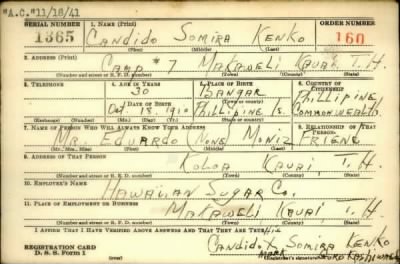 "A.C."11/18/41
SERIAL NUMBER 1. NAME (Print) ORDER NUMBER
1365 CANDIDO SOMIRA KENKO 160
(First) (Middle) (Last)
2. ADDRESS (Print)
CAMP #7 MAKAWELI KAUAI T. H.
(Number and street or R. F. D. number) (Town) (County) (State)
3. TELEPHONE 4. AGE IN YEARS 5. PLACE OF BIRTH 6. COUNTRY OF CITIZENSHIP
30 BANGAR PHILLIPINE
DATE OF BIRTH (Town or county)
Oct 18 1910 PHILLIPINE Is. COMMONWEALTH
(Mo.) (Day) (Yr.) (State or country)
7. NAME OF PERSON WHO WILL ALWAYS KNOW YOUR ADDRESS 8. RELATIONSHIP OF THAT PERSON
MR. EDUARDO (NONE) MONIZ FRIEND
(Mr., Mrs., Miss) (First) (Middle) (Last)
9. ADDRESS OF THAT PERSON
KOLOA KAUAI, T. H.
(Number and street or R. F. D. number) (Town) (County) (State)
10. EMPLOYER'S NAME
HAWAIIAN SUGAR CO.
11. PLACE OF EMPLOYMENT OR BUSINESS
MAKAWELI KAUAI T. H.
(Number and street or R. F. D. number) (Town) (County) (State)
I AFFIRM THAT I HAVE VERIFIED ABOVE ANSWERS AND THAT THEY ARE TRUE.
His
REGISTRATION CARD Candido X Somira Kenko
D. S. S. Form 1 Mark
(Registrant's signature)